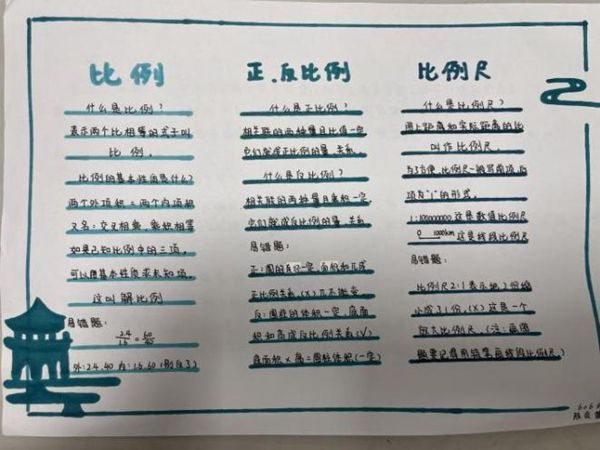 比例
什么是比例？
表示两个比相等的式子叫
比例。
比例的基本性质是什么？
两个外项积=两个内项积
又名：交叉相乘，乘积相等
如果已知比例中的三项，
可以用基本性质求未知项。
这叫解比例
易错题：
24/16=60/40
外：24.40 内：16.60
正、反比例
什么是正比例？
相关联的两种量且比值一定
它们就成正比例的量，关系
什么是反比例？
相关联的两种量且乘积一定，
它们就成反比例的量，关系
易错题：
正：圆的 一定，面积和 成
正比例关系，(X)
反：圆柱的体积一定，底面
积和高成反比例关系(√)
底面积×高=圆柱体积(一定)
比例尺
什么是比例尺？
图上距离和实际距离的比
叫作比例尺。
为了方便，比例尺一般写前项，后
项为"1"的形式。
这是数值比例尺
这是线段比例尺
易错题：
比例尺2:1表示把2份缩
小成了1份，(X)这是一个
放大比例尺。(注：画图
题要记得用铅笔画线段比例尺)